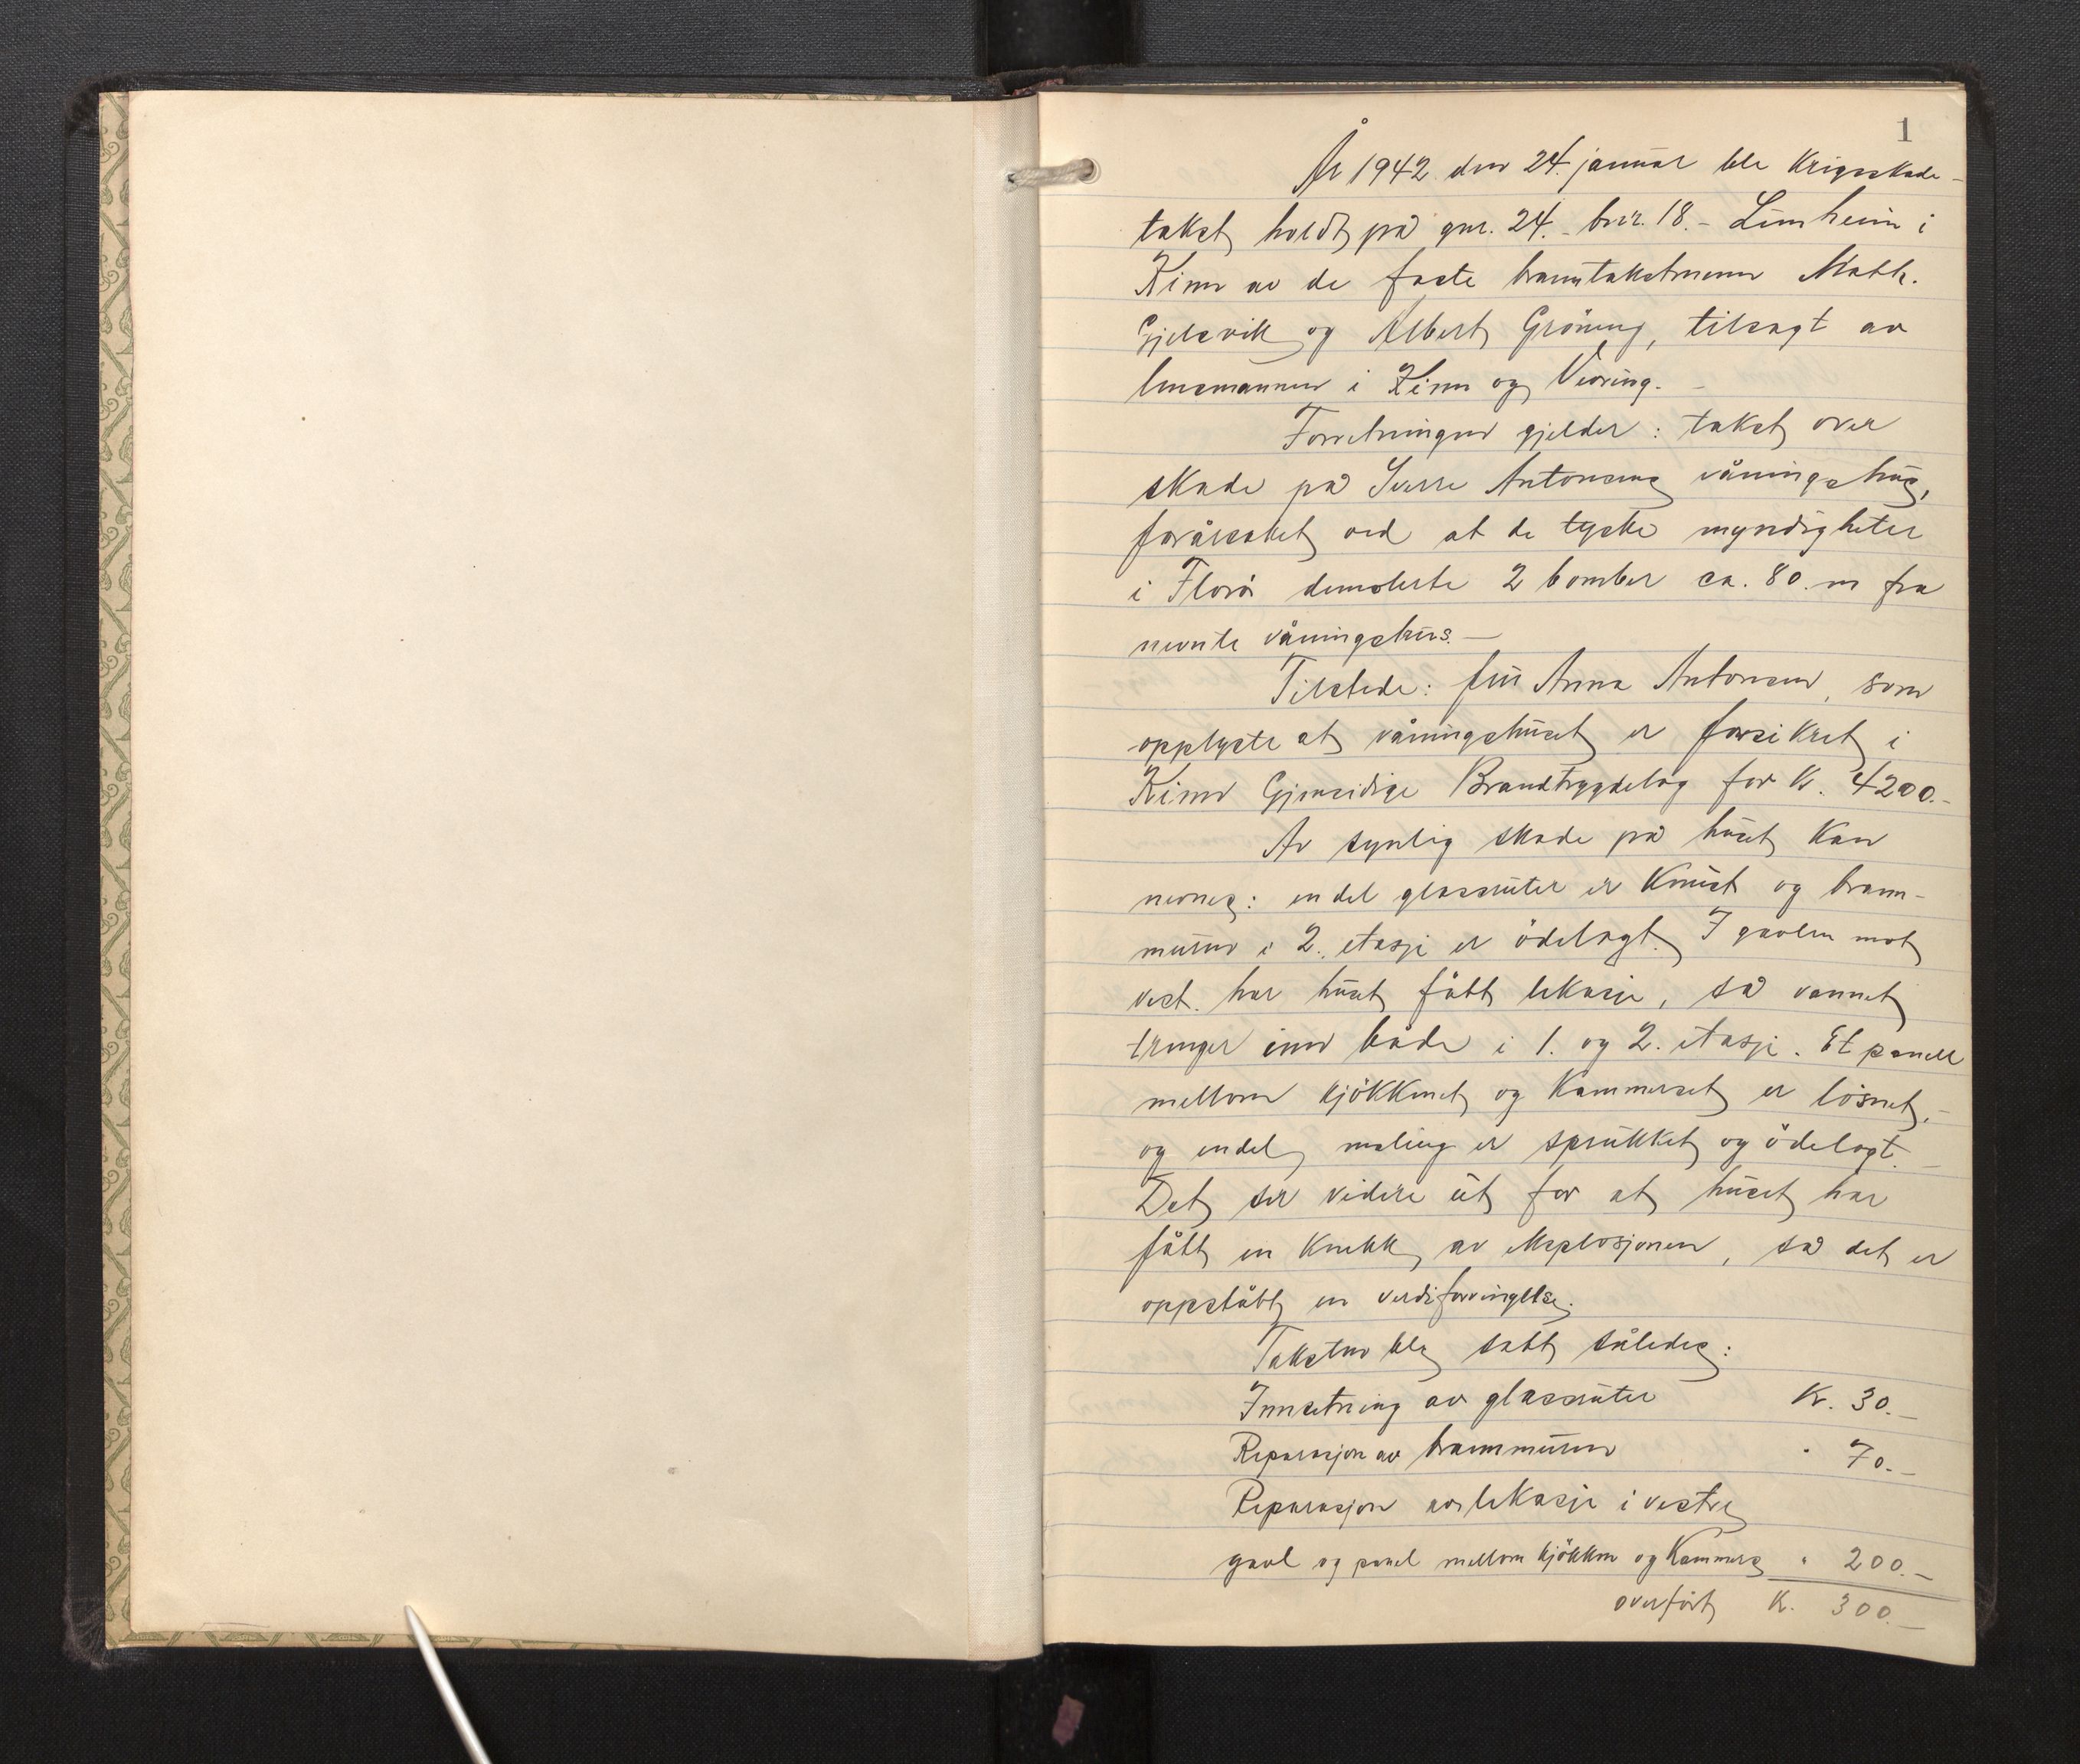 1
År 1942 den 24. januar ble krigsskade-
takst holdt på gnr. 24. - bnr. 18. - Limheim i
Kinn av de faste branntakstmenn Math.
Gjelsvik og Albert Gröning, tilsagt av
lensmannen i Kinn og Vevring. -
Forretningen gjelder: takst over
skade på Sverre Antonsens våningshus,
forårsaket ved at de tyske myndigheter
i Florö demolerte 2 bomber ca. 80. m fra
nevnte våningshus. -
Tilstede: fru Anna Antonsen, som
opplyste at våningshuset er forsikret i
Kinn Gjensidige Brandtrygdelag for kr. 4200.-
Av synlig skade på huset kan
nevnes: endel glassruter er knust og brann-
muren i 2. etasje er ödelagt. I gavlen mot
vest. har huset fått lekasje, så vannet
trenger inn både i 1. og 2. etasje. Et panell
mellom kjökkenet og kammerset er lösnet, -
og endel maling er sprukket og ödelagt. -
Det ser videre ut for at huset har
fått en knekk av eksplosjonen, så det er
oppstått en verdiforringelse.
Taksten ble satt således:
Innsetning av glassruter Kr. 30.-
Reparasjon av brannmuren " 70.-
Reparasjon av lekasje i vestre
gavl og panel mellom kjökken og kammers " 200.-
overfört Kr. 300.-